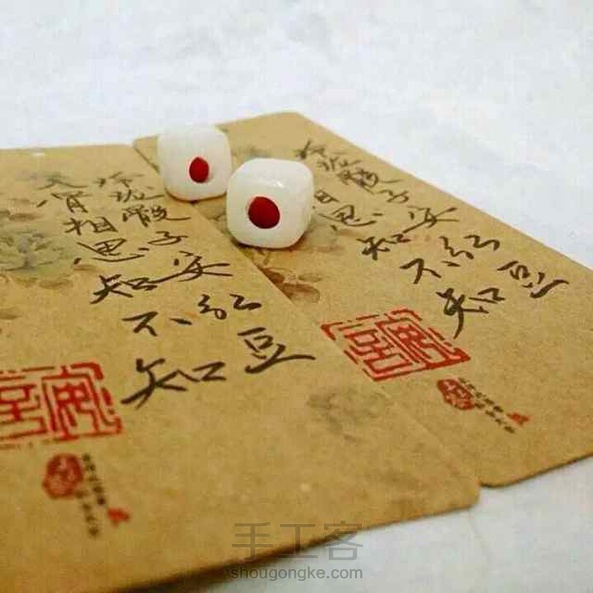 玲珑骰子安红豆
入骨相思知不知
玲珑骰子安红豆
相思知不知
手工客
shougongke.com